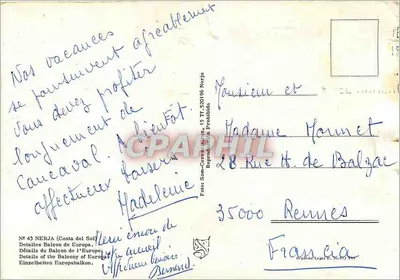 Nos vacances
se poursuivent agréablement
Vous devez profiter
longuement de
Cancaval. A bientôt.
affectueux baisers
Madeleine
Merci encore de
accueil
Affectueux baisers
Bernard
Nº 43 NERJA (Costa del Sol)
Detalles Balcon de Europa.
Détails du Balcon de l'Europe.
Details of the Balcony of Europe.
Einzelheiten Europabalkon.
Nerja
Reprod. Prohibida
CPAPHIL
Monsieur et
Madame Monnet
28 Rue H. de Balzac
35000 Rennes
Francia